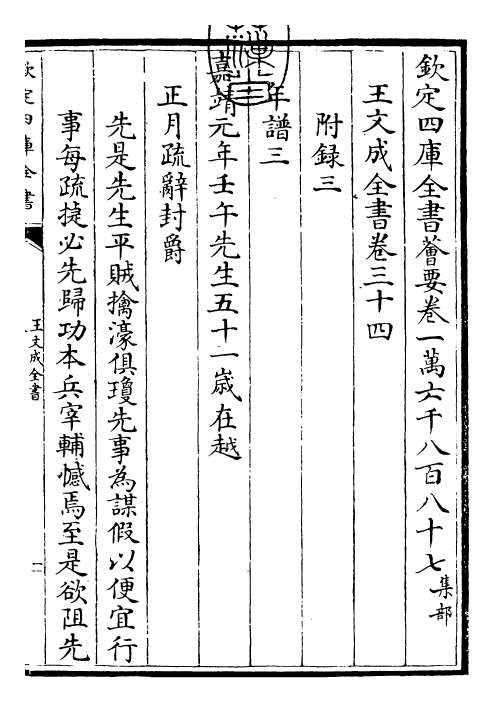 欽定四庫全書薈要卷一萬六千八百八十七集部
王文成全書卷三十四
附録三
年譜三
嘉靖元年壬午先生五十一歳在越
正月疏辭封爵
先是先生平賊擒濠俱瓊先事為謀假以便宜行
事每疏捷必先歸功本兵宰輔憾焉至是欲阻先
欽定四庫全書
王文成全書
一